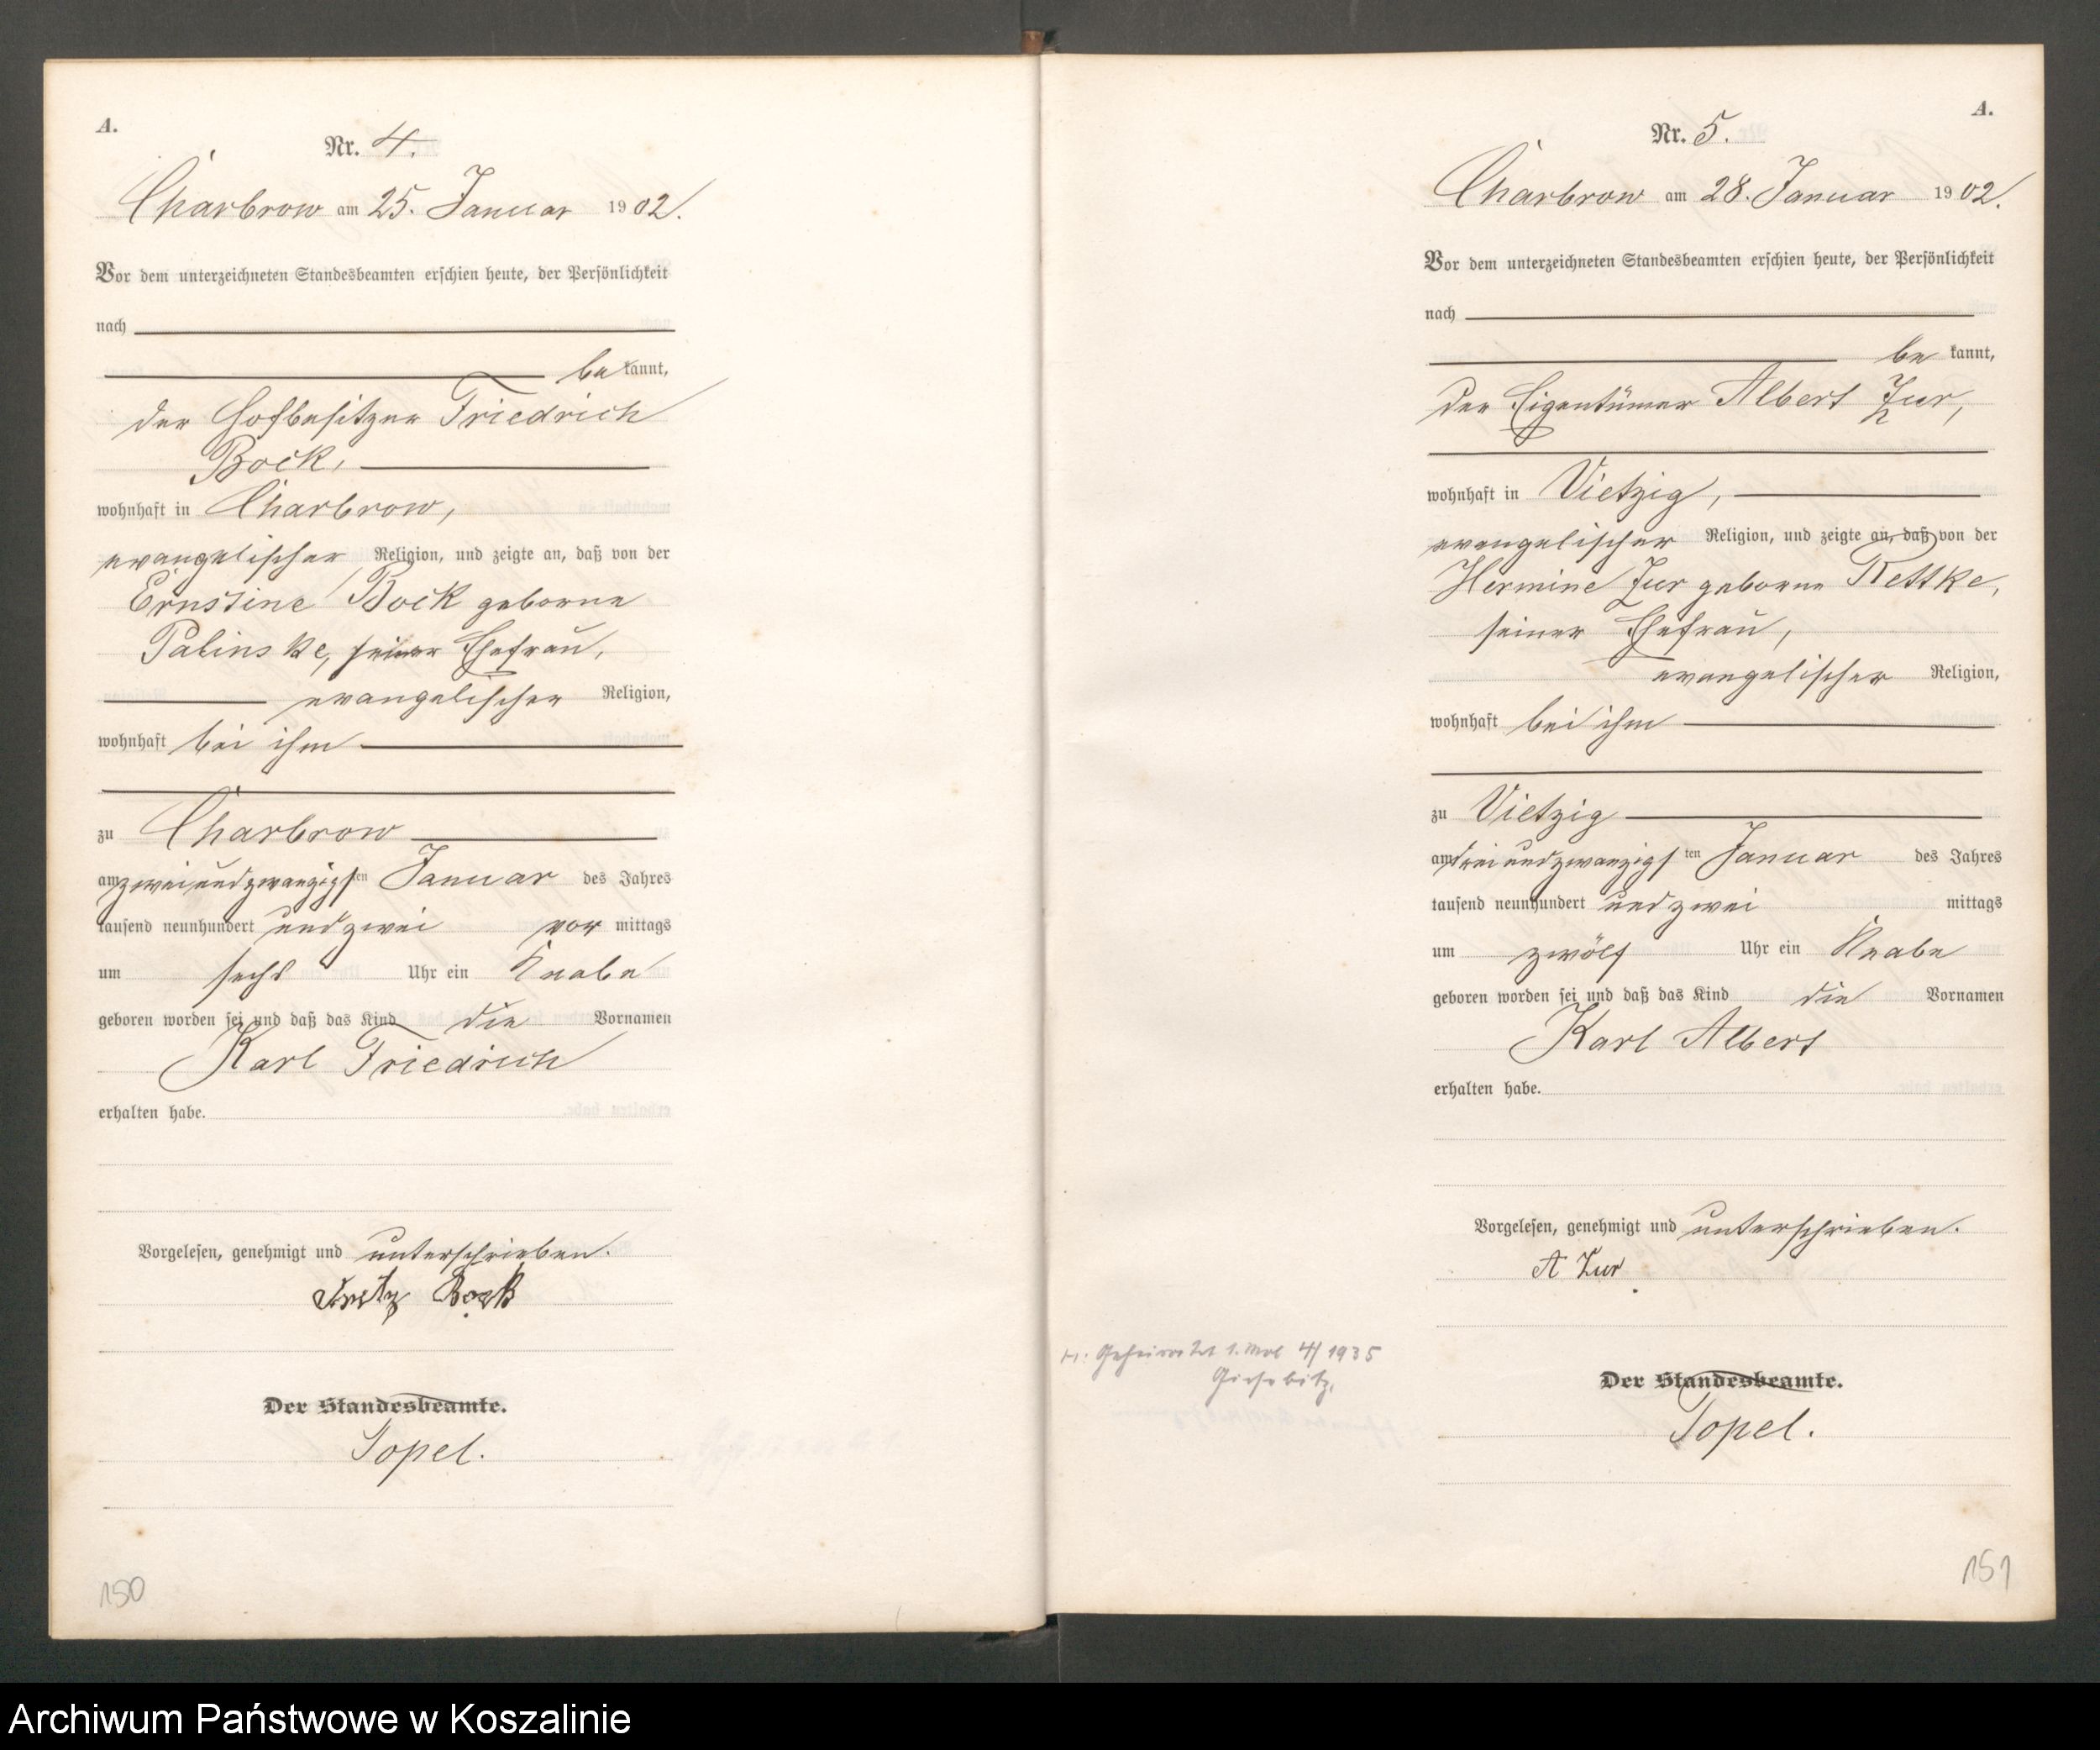 A.
Nr. 4.
Charbrow am 25. Januar 1902.
Vor dem unterzeichneten Standesbeamten erschien heute, der Persönlichkeit
nach
bekannt,
der Hofbesitzer Friedrich
Bock,
wohnhaft in Charbrow,
evangelischer Religion, und zeigte an, daß von der
Ernstine Bock geborne
Palinske, seiner Ehefrau,
evangelischer Religion,
wohnhaft bei ihm
zu Charbrow
am zweiundzwanzigsten Januar des Jahres
tausend neunhundert und zwei vor mittags
um sechs Uhr ein Knabe
geboren worden sei und daß das Kind die Vornamen
Karl Friedrich
erhalten habe.
Vorgelesen, genehmigt und unterschrieben.
Fritz Bock
Der Standesbeamte.
Topel.
150
A.
Nr. 5.
Charbrow am 28. Januar 1902.
Vor dem unterzeichneten Standesbeamten erschien heute, der Persönlichkeit
nach
bekannt,
der Eigentümer Albert Zur,
wohnhaft in Vietzig,
evangelischer Religion, und zeigte an, daß von der
Hermine Zur geborne Rettke,
seiner Ehefrau,
evangelischer Religion,
wohnhaft bei ihm
zu Vietzig
am dreiundzwanzigsten Januar des Jahres
tausend neunhundert und zwei mittags
um zwölf Uhr ein Knabe
geboren worden sei und daß das Kind die Vornamen
Karl Albert
erhalten habe.
Vorgelesen, genehmigt und unterschrieben.
A Zur
H: Geheiratet 1. Mal 4/1935
Giesebitz.
Der Standesbeamte.
Topel.
151
Archiwum Państwowe w Koszalinie